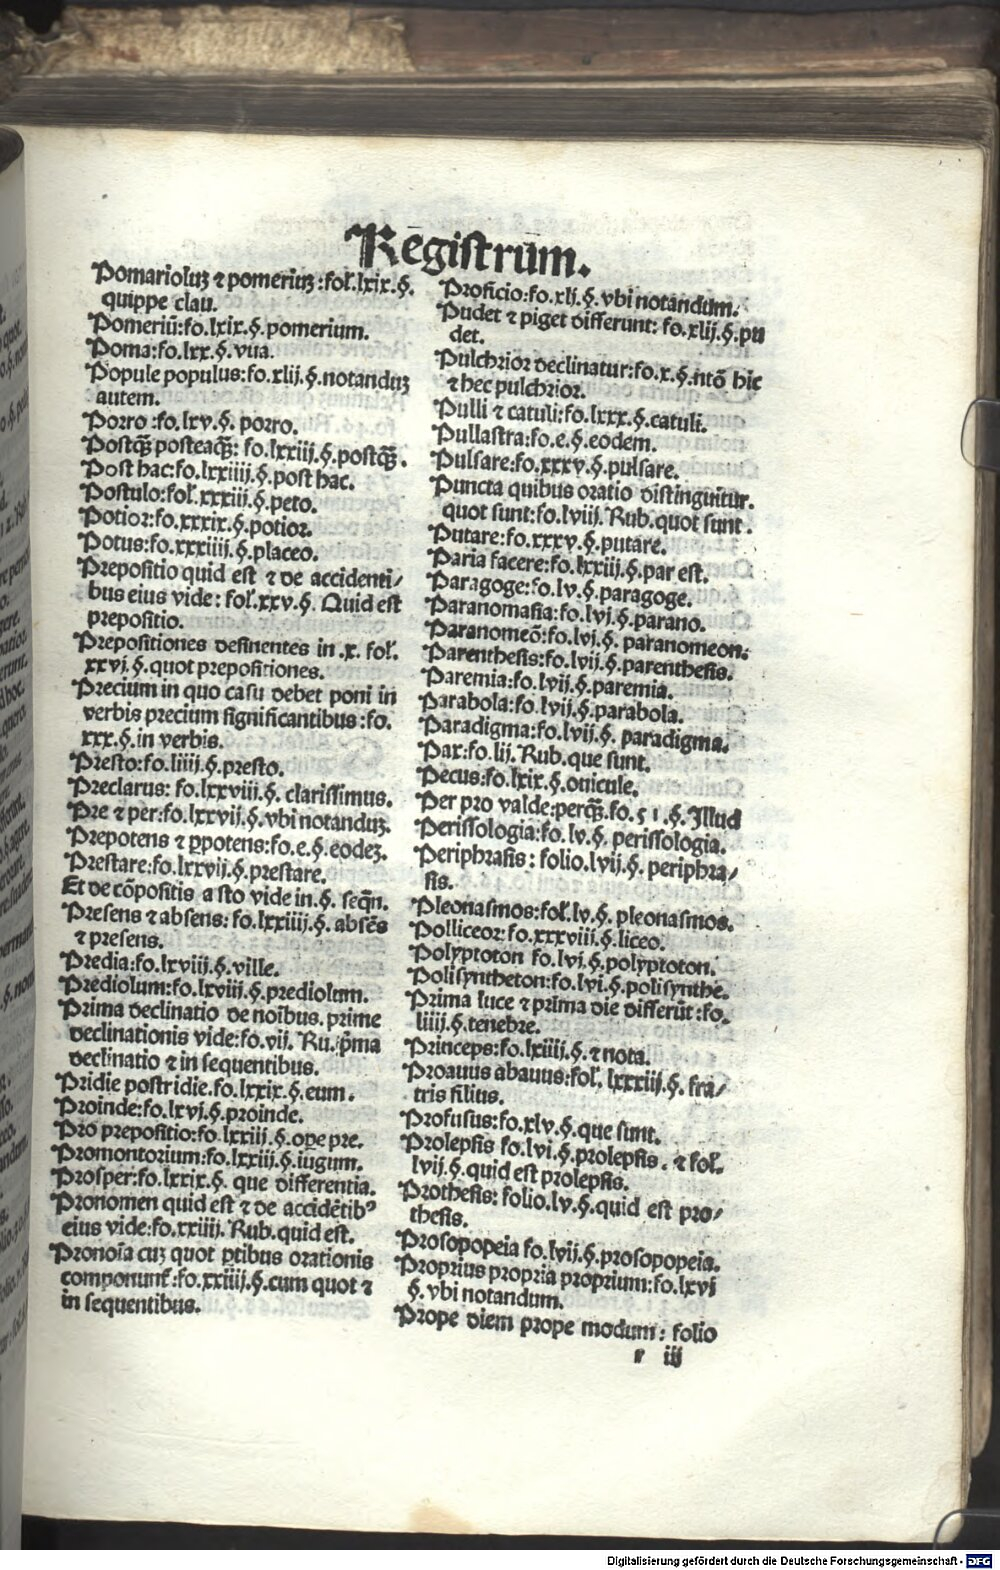 Regiſtrum.
Pomarioluꝫ ⁊ pomeriuꝫ:fol.lxix.§.
quippe clau.
Pomeriū:fo.lxix.§.pomerium.
Poma:fo.lxx.§.vua.
Popule populus:fo.xlij.§.notanduꝫ
autem.
Porro :fo.lxv.§. porro.
Poſtqꝫ̄ poſteaqꝫ̄: fo.lxxiij.§.poſtqꝫ̄.
Poſt hac:fo.lxxiiij.§.poſt hac.
Poſtulo:fol.xxxiij.§.peto.
Potior:fo.xxxix.§.potior.
Potus:fo.xxxiiij.§.placeo.
Prepoſitio quid eſt ⁊ de accidenti/
bus eius vide: fol.xxv.§. Quid eſt
prepoſitio.
Prepoſitiones deſinentes in .x. fol.
xxvj.§.quot prepoſitiones.
Precium in quo caſu debet poni in
verbis precium ſignificantibus :fo.
xxx.§.in verbis.
Preſto:fo.liiij.§.preſto.
Preclarus: fo.lxxviij.§. clariſſimus.
Pre ⁊ per:fo.lxxvij.§.vbi notanduꝫ.
Prepotens ⁊ ꝑpotens:fo.e.§.eodeꝫ.
Preſtare:fo.lxxvij.§.preſtare.
Et de cōpoſitis a ſto vide in.§. ſeqn̄.
Preſens ⁊ abſens: fo.lxxiiij.§.abſēs
⁊ preſens.
Predia:fo.lxviij.§.ville.
Prediolum:fo.lxviij.§.prediolum.
Prima declinatio de noībus. prime
declinationis vide:fo.vij. Ru.pīma
declinatio ⁊ in ſequentibus.
Pridie poſtridie.fo.lxxix.§.eum.
Proinde:fo.lxvj.§.proinde.
Pro prepoſitio:fo.lxxiij.§.ope pre.
Promontorium:fo.lxxiij.§.iugum.
Proſper:fo.lxxix.§. que differentia.
Pronomen quid eſt ⁊ de accidētibꝰ
eius vide:fo.xxiiij. Rub.quid eſt.
Pronoīa cuꝫ quot ꝑtibus orationis
componunt᷑:fo.xxiiij.§.cum quot ⁊
in ſequentibus.
Proficio:fo.xlj.§.vbi notandum.
Pudet ⁊ piget differunt: fo.xlij.§.pu
det.
Pulchrior declinatur:fo.x.§.ntō hic
⁊ hec pulchrior.
Pulli ⁊ catuli:fo.lxxx.§.catuli.
Pullaſtra:fo.e.§.eodem.
Pulſare:fo.xxxv.§.pulſare.
Puncta quibus oratio diſtinguitur.
quot ſunt:fo.lviij.Rub.quot ſunt.
Putare:fo.xxxv.§.putare.
Paria facere:fo.lxxiij.§.par eſt.
Paragoge:fo.lv.§.paragoge.
Paranomaſia:fo.lvj.§.parano.
Paranomeō:fo.lvj.§. paranomeon.
Parentheſis:fo.lvij.§.parentheſis.
Paremia:fo.lvij.§.paremia.
Parabola:fo.lvij.§.parabola.
Paradigma:fo.lvij.§. paradigma.
Pax:fo.lij. Rub.que ſunt.
Pecus:fo.lxix.§.ouicule.
Per pro valde:perqꝫ̄.fo.51.§.Illud
Periſſologia:fo.lv.§. periſſologia.
Periphraſis: folio.lvij.§. periphra/
ſis.
Pleonaſmos:fol.lv.§. pleonaſmos.
Polliceor:fo.xxxviij.§.liceo.
Polyptoton fo.lvj.§.polyptoton.
Poliſyntheton:fo.lvj.§.poliſynthe.
Prima luce ⁊ prima die differūt:fo.
liiij.§.tenebre.
Princeps:fo.lxiiij.§.⁊ nota.
Proauus abauus:fol. lxxxiij.§. fra/
tris filius.
Profuſus:fo.xlv.§.que ſunt.
Prolepſis fo.lvj.§.prolepſis. ⁊ fol.
lvij.§.quid eſt prolepſis.
Protheſis: folio.lv.§.quid eſt pro/
theſis.
Proſopopeia fo.lvij.§.proſopopeia.
Proprius propria proprium:fo.lxvj
§.vbi notandum.
Prope diem prope modum: folio
r iij
Digitalisierung gefördert durch die Deutsche Forschungsgemeinschaft - DFG